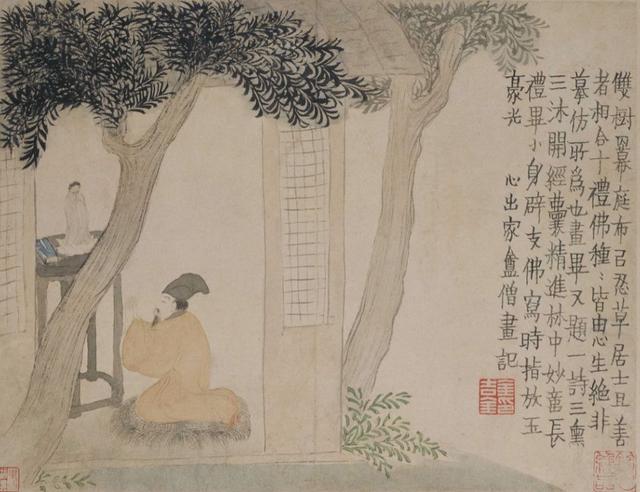 雙樹羃庭布㠯忍草居士具善
者相合十禮佛種〻皆由心生絕非
摹仿所爲也畫畢又題一詩三熏
三沐開經囊精進林中妙長
禮畢小身辟支佛寫時指放玉
豪光 心出家盦僧畫記